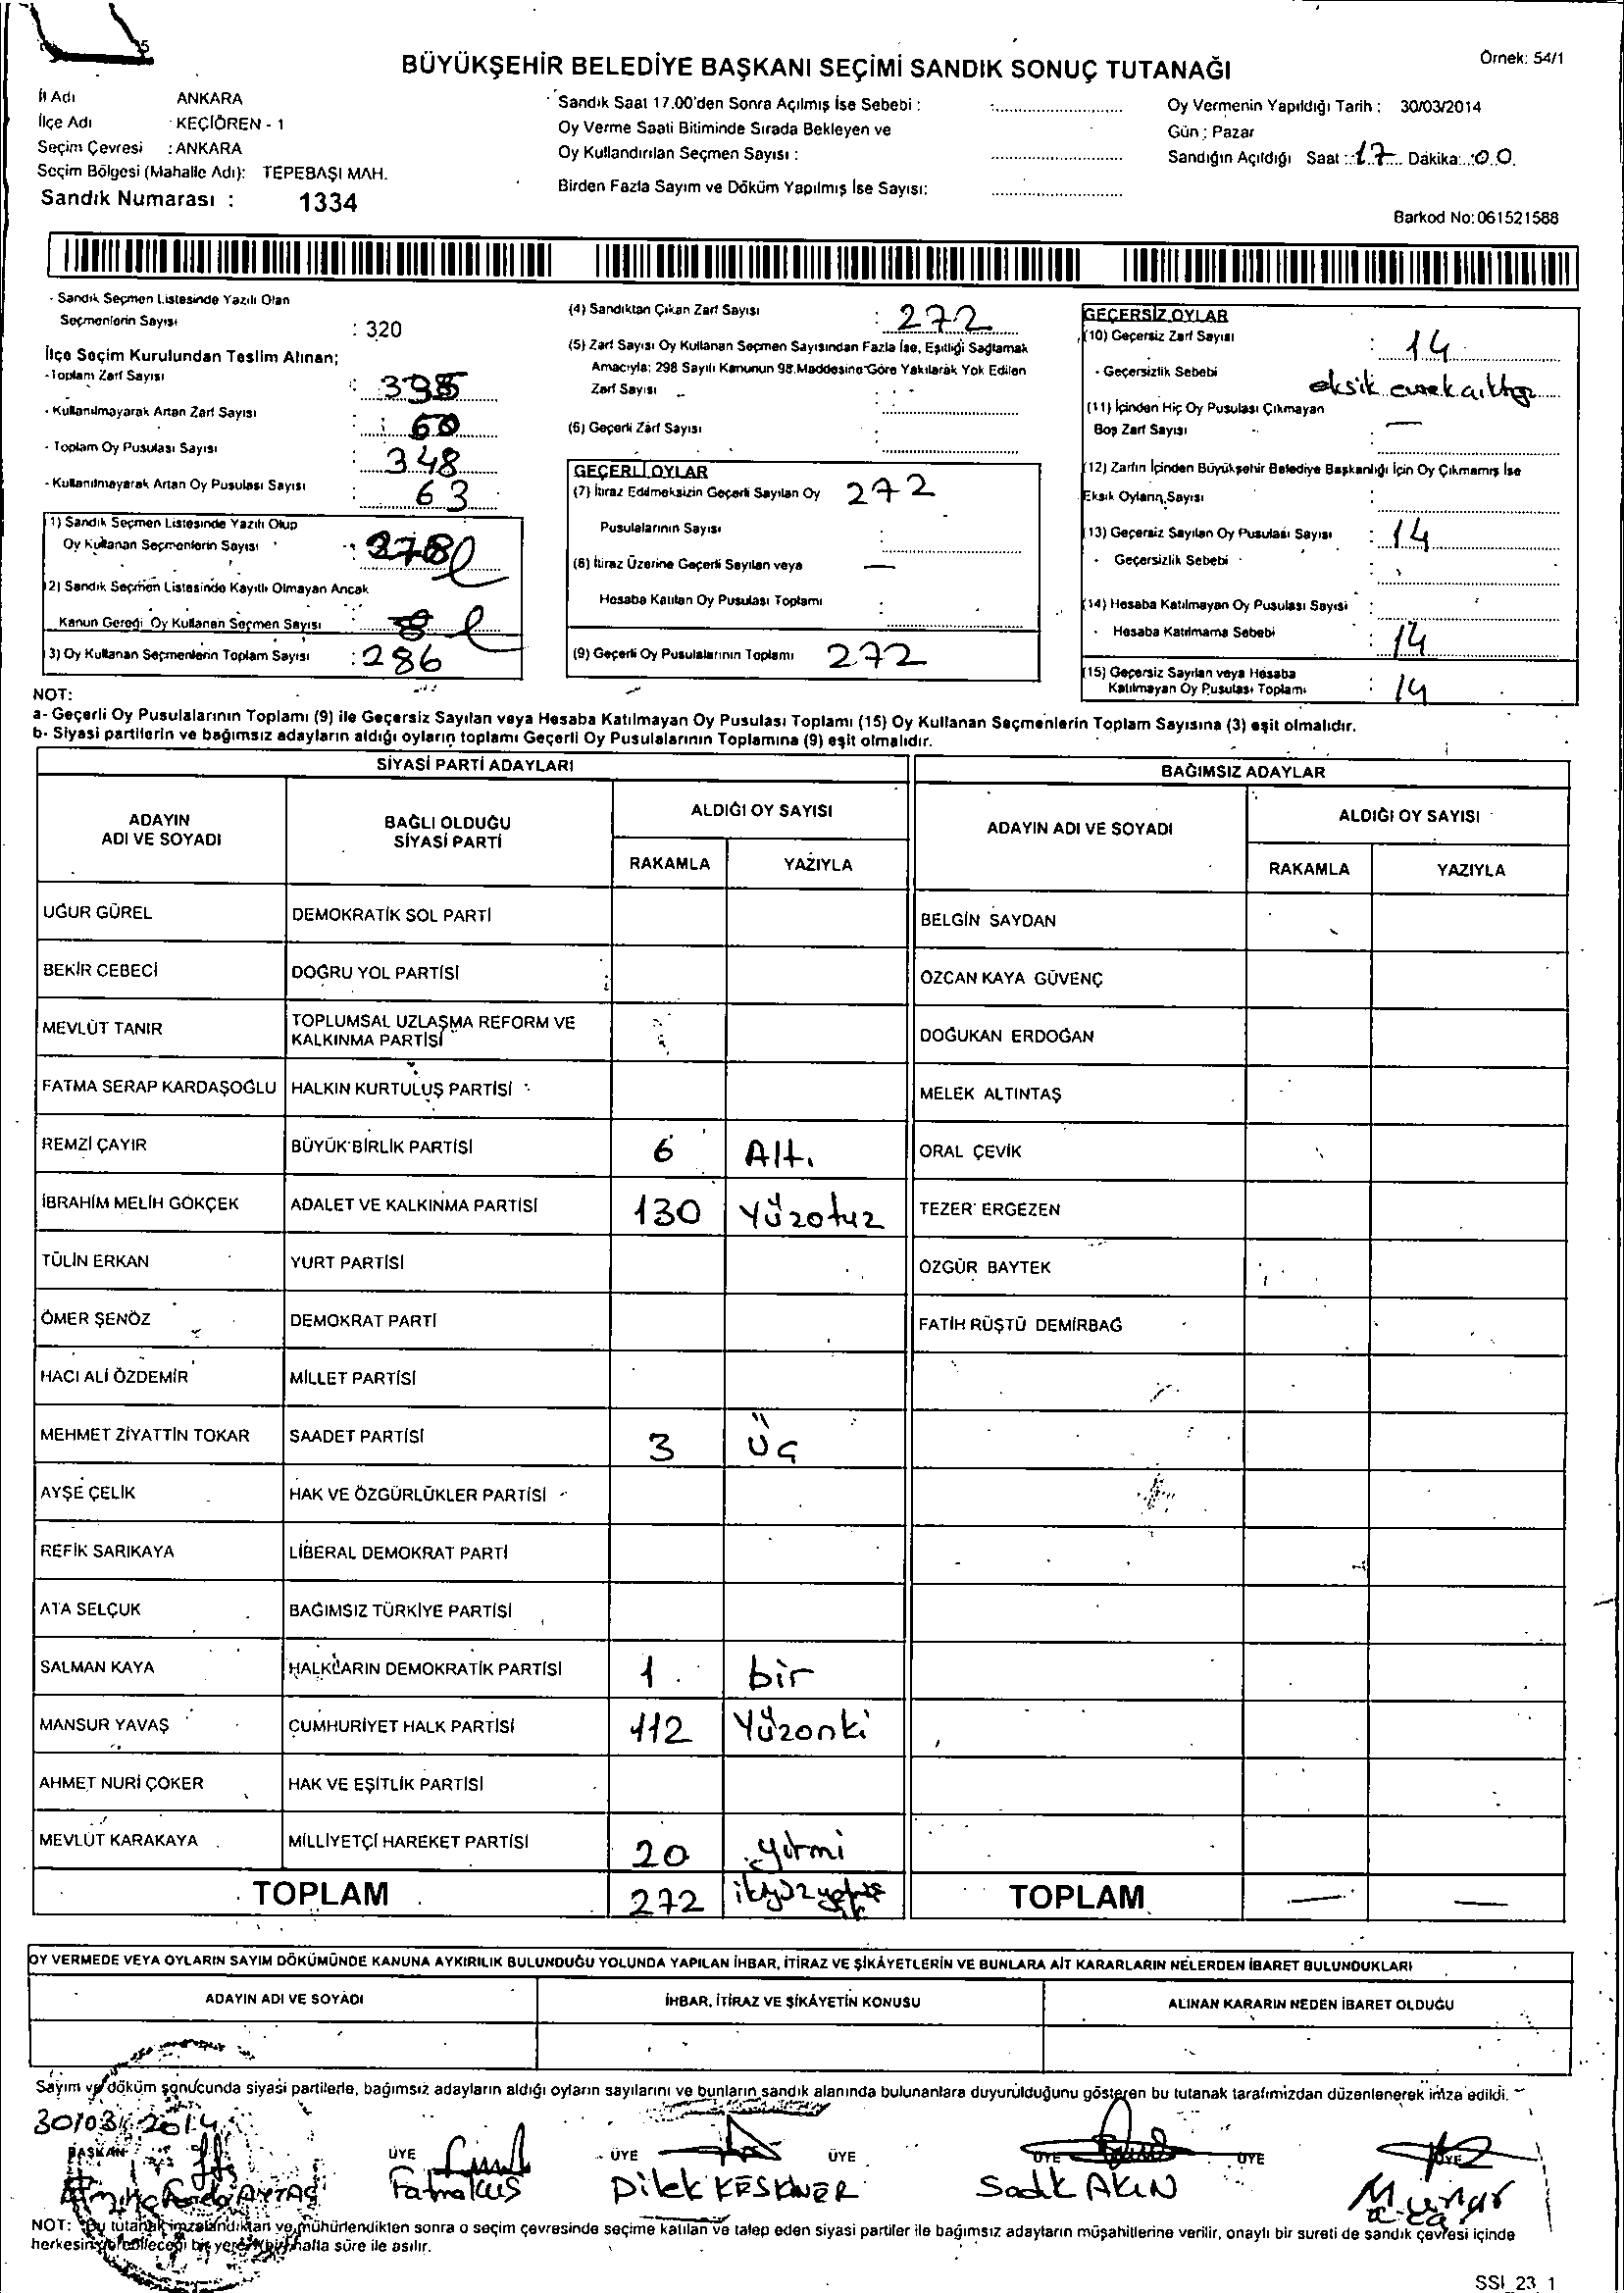 BÜYÜKŞEHİR BELEDİYE BAŞKANI SEÇİMİ SANDIK SONUÇ TUTANAĞI
Örnek: 54/1
İl Adı ANKARA
İlçe Adı KEÇİÖREN - 1
Seçim Çevresi : ANKARA
Seçim Bölgesi (Mahalle Adı): TEPEBAŞI MAH.
Sandık Numarası : 1334
Sandık Saat 17.00'den Sonra Açılmış İse Sebebi :
Oy Verme Saati Bitiminde Sırada Bekleyen ve
Oy Kullandırılan Seçmen Sayısı :
Birden Fazla Sayım ve Döküm Yapılmış İse Sayısı:
Oy Vermenin Yapıldığı Tarih : 30/03/2014
Gün : Pazar
Sandığın Açıldığı Saat : 17 Dakika: 00
Barkod No: 061521588
- Sandık Seçmen Listesinde Yazılı Olan
Seçmenlerin Sayısı : 320
İlçe Seçim Kurulundan Teslim Alınan;
- Toplam Zarf Sayısı :
- Kullanılmayarak Artan Zarf Sayısı : 60
- Toplam Oy Pusulası Sayısı : 348
- Kullanılmayarak Artan Oy Pusulası Sayısı : 63
1) Sandık Seçmen Listesinde Yazılı Olup
Oy Kullanan Seçmenlerin Sayısı : 278
2) Sandık Seçmen Listesinde Kayıtlı Olmayan Ancak
Kanun Gereği Oy Kullanan Seçmen Sayısı : 8
3) Oy Kullanan Seçmenlerin Toplam Sayısı : 286
(4) Sandıktan Çıkan Zarf Sayısı : 272
(5) Zarf Sayısı Oy Kullanan Seçmen Sayısından Fazla İse, Eşitliği Sağlamak
Amacıyla; 298 Sayılı Kanunun 98.Maddesine Göre Yakılarak Yok Edilen
Zarf Sayısı :
(6) Geçerli Zarf Sayısı :
GEÇERLİ OYLAR
(7) İtiraz Edilmeksizin Geçerli Sayılan Oy 272
Pusulalarının Sayısı :
(8) İtiraz Üzerine Geçerli Sayılan veya —
Hesaba Katılan Oy Pusulası Toplamı :
(9) Geçerli Oy Pusulalarının Toplamı 272
GEÇERSİZ OYLAR
(10) Geçersiz Zarf Sayısı : 14
- Geçersizlik Sebebi eksik evrek çıktığı
(11) İçinden Hiç Oy Pusulası Çıkmayan
Boş Zarf Sayısı : —
(12) Zarfın İçinden Büyükşehir Belediye Başkanlığı İçin Oy Çıkmamış İse
Eksik Oyların Sayısı :
(13) Geçersiz Sayılan Oy Pusulası Sayısı : 14
- Geçersizlik Sebebi :
(14) Hesaba Katılmayan Oy Pusulası Sayısı :
- Hesaba Katılmama Sebebi : 14
(15) Geçersiz Sayılan veya Hesaba
Katılmayan Oy Pusulası Toplamı : 14
NOT:
a- Geçerli Oy Pusulalarının Toplamı (9) ile Geçersiz Sayılan veya Hesaba Katılmayan Oy Pusulası Toplamı (15) Oy Kullanan Seçmenlerin Toplam Sayısına (3) eşit olmalıdır.
b- Siyasi partilerin ve bağımsız adayların aldığı oyların toplamı Geçerli Oy Pusulalarının Toplamına (9) eşit olmalıdır.
SİYASİ PARTİ ADAYLARI
BAĞIMSIZ ADAYLAR
ADAYIN ADI VE SOYADI
BAĞLI OLDUĞU SİYASİ PARTİ
ALDIĞI OY SAYISI
RAKAMLA YAZIYLA
ADAYIN ADI VE SOYADI
ALDIĞI OY SAYISI
RAKAMLA YAZIYLA
UĞUR GÜREL DEMOKRATİK SOL PARTİ BELGİN SAYDAN
BEKİR CEBECİ DOĞRU YOL PARTİSİ ÖZCAN KAYA GÜVENÇ
MEVLÜT TANIR TOPLUMSAL UZLAŞMA REFORM VE KALKINMA PARTİSİ DOĞUKAN ERDOĞAN
FATMA SERAP KARDAŞOĞLU HALKIN KURTULUŞ PARTİSİ MELEK ALTINTAŞ
REMZİ ÇAYIR BÜYÜK BİRLİK PARTİSİ 6 Altı ORAL ÇEVİK
İBRAHİM MELİH GÖKÇEK ADALET VE KALKINMA PARTİSİ 130 Yüzotuz TEZER ERGEZEN
TÜLİN ERKAN YURT PARTİSİ ÖZGÜR BAYTEK
ÖMER ŞENÖZ DEMOKRAT PARTİ FATİH RÜŞTÜ DEMİRBAĞ
HACI ALİ ÖZDEMİR MİLLET PARTİSİ
MEHMET ZİYATTİN TOKAR SAADET PARTİSİ 3 Üç
AYŞE ÇELİK HAK VE ÖZGÜRLÜKLER PARTİSİ
REFİK SARIKAYA LİBERAL DEMOKRAT PARTİ
ATA SELÇUK BAĞIMSIZ TÜRKİYE PARTİSİ
SALMAN KAYA HALKLARIN DEMOKRATİK PARTİSİ 1 bir
MANSUR YAVAŞ CUMHURİYET HALK PARTİSİ 112 Yüzonki
AHMET NURİ ÇOKER HAK VE EŞİTLİK PARTİSİ
MEVLÜT KARAKAYA MİLLİYETÇİ HAREKET PARTİSİ 20 yirmi
TOPLAM 272 TOPLAM — —
OY VERMEDE VEYA OYLARIN SAYIM DÖKÜMÜNDE KANUNA AYKIRILIK BULUNDUĞU YOLUNDA YAPILAN İHBAR, İTİRAZ VE ŞİKÂYETLERİN VE BUNLARA AİT KARARLARIN NELERDEN İBARET BULUNDUKLARI
ADAYIN ADI VE SOYADI İHBAR, İTİRAZ VE ŞİKÂYETİN KONUSU ALINAN KARARIN NEDEN İBARET OLDUĞU
Sayım ve döküm sonucunda siyasi partilerle, bağımsız adayların aldığı oyların sayılarını ve bunların sandık alanında bulunanlara duyurulduğunu gösteren bu tutanak tarafımızdan düzenlenerek imza edildi.
30/03/2014
BAŞKAN ÜYE ÜYE ÜYE ÜYE ÜYE ÜYE
AYTAŞ Fatma KUS Dilek KESKİNER Sadık AKIN
NOT: Bu tutanak imzalandıktan ve mühürlendikten sonra o seçim çevresinde seçime katılan ve talep eden siyasi partiler ile bağımsız adayların müşahitlerine verilir, onaylı bir sureti de sandık çevresi içinde
herkesin görebileceği bir yere (bir) hafta süre ile asılır.
SSI_23_1